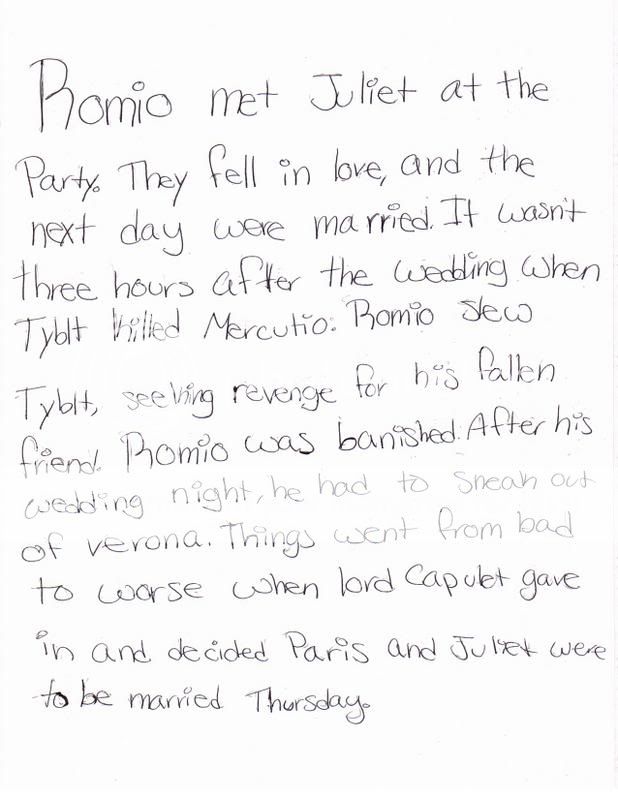 Romio met Juliet at the
Party. They fell in love, and the
next day were married. It wasn't
three hours after the wedding when
Tyblt killed Mercutio. Romio slew
Tyblt, seeking revenge for his fallen
friend. Romio was banished. After his
wedding night, he had to sneak out
of verona. Things went from bad
to worse when lord Capulet gave
in and decided Paris and Juliet were
to be married Thursday.